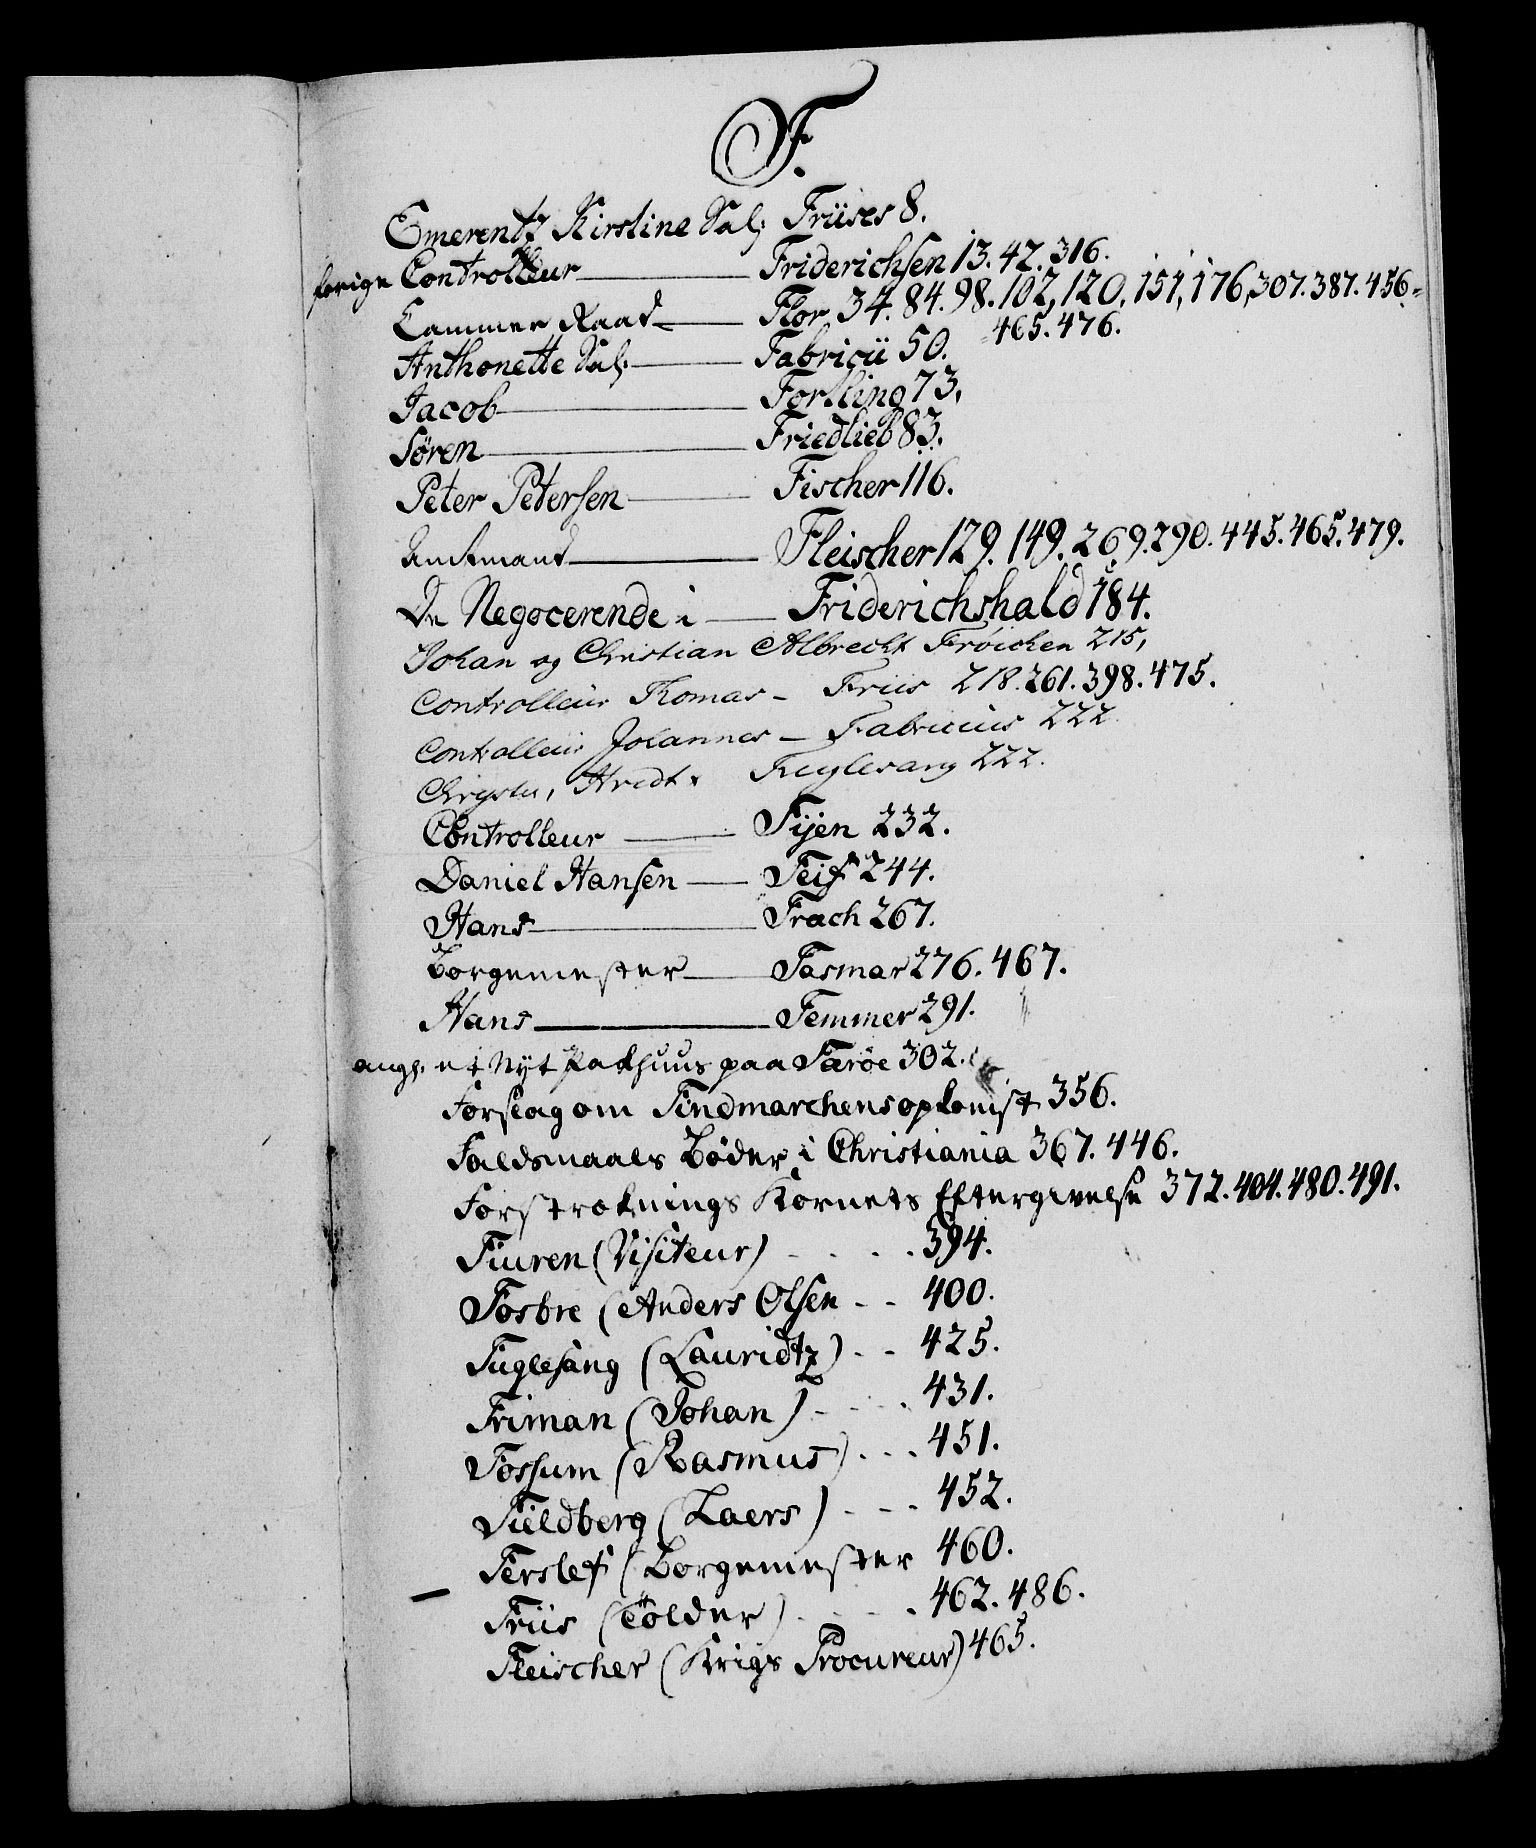 F.
Emerentz Kirstine Sal: Friises 8.
forige Controlleur Friderichsen 13. 42. 316.
Cammer Raad Flor 34. 84. 98. 102, 120, 151, 176, 307. 387. 456 =
= 465. 476.
Anthonette Sal: Fabricii 50.
Jacob Fortling 73,
Søren Friedlieb 83.
Peter Petersen Fischer 116.
Amtmand Fleischer 129. 149. 269. 290. 445. 465. 479.
De Negocerende i Friderichshald 184.
Johan og Christian Albrecht Frøichen 215,
Controlleur Thomas - Friis 218. 261. 398. 475.
Controlleur Johannes - Fabricius 222.
Fuglesang 222.
Controlleur Fijen 232.
Daniel Hansen Feif 244.
Hans Frach 267.
Borgemester Fasmar 276. 467.
Hans Femmer 291.
angh. et Nÿt Pakhuus paa Færöe 302.
Forslag om Findmarchens opkomst 356.
Faldsmaals Bøder i Christiania 367. 446.
Forstræknings Kornets Eftergivelse 372. 404. 480. 491.
Fiuren (Visiteur) - - - - 394.
Fosbre (Anders Olsen - - 400.
Fuglesang (Lauridtz) - - 425.
Friman (Johan) - - - - 431.
Fossum (Rasmus) - - - 451.
Fieldberg (Laers) - - - 452.
Ferslef (Borgemester 460.
— Friis (Tolder) - - - - 462. 486.
Fleischer (Krigs Procureur) 465.